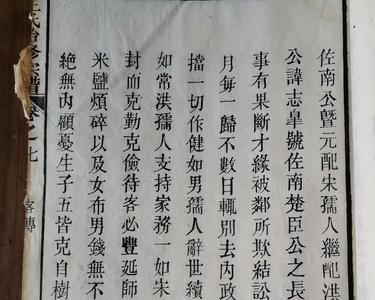 佐南公曁元配宋孺人繼配洪
公諱志皇號佐南楚臣公之長
事有果斷才緣被鄰所欺結訟
月每一歸不數日輒別去內政
擋一切作健如男孺人辭世續
如常洪孺人支持家務一如宋
封而克勤克儉待客必豐延師
米鹽煩碎以及女布男錢無不
絶無內顧憂生子五皆克自樹
氏合修宗譜 卷之七 客傳